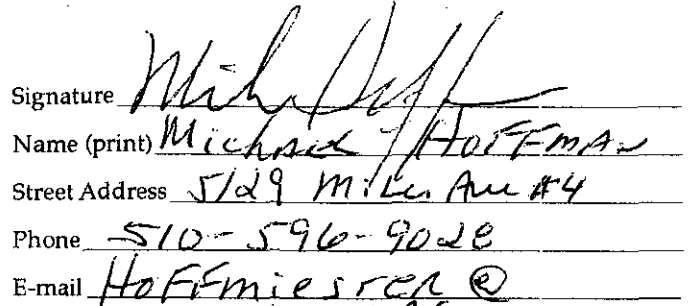 Signature
Name (print) Michael HOFFMAN
Street Address 5129 Miles Ave #4
Phone 510-596-9028
E-mail HOFFmiesTER @